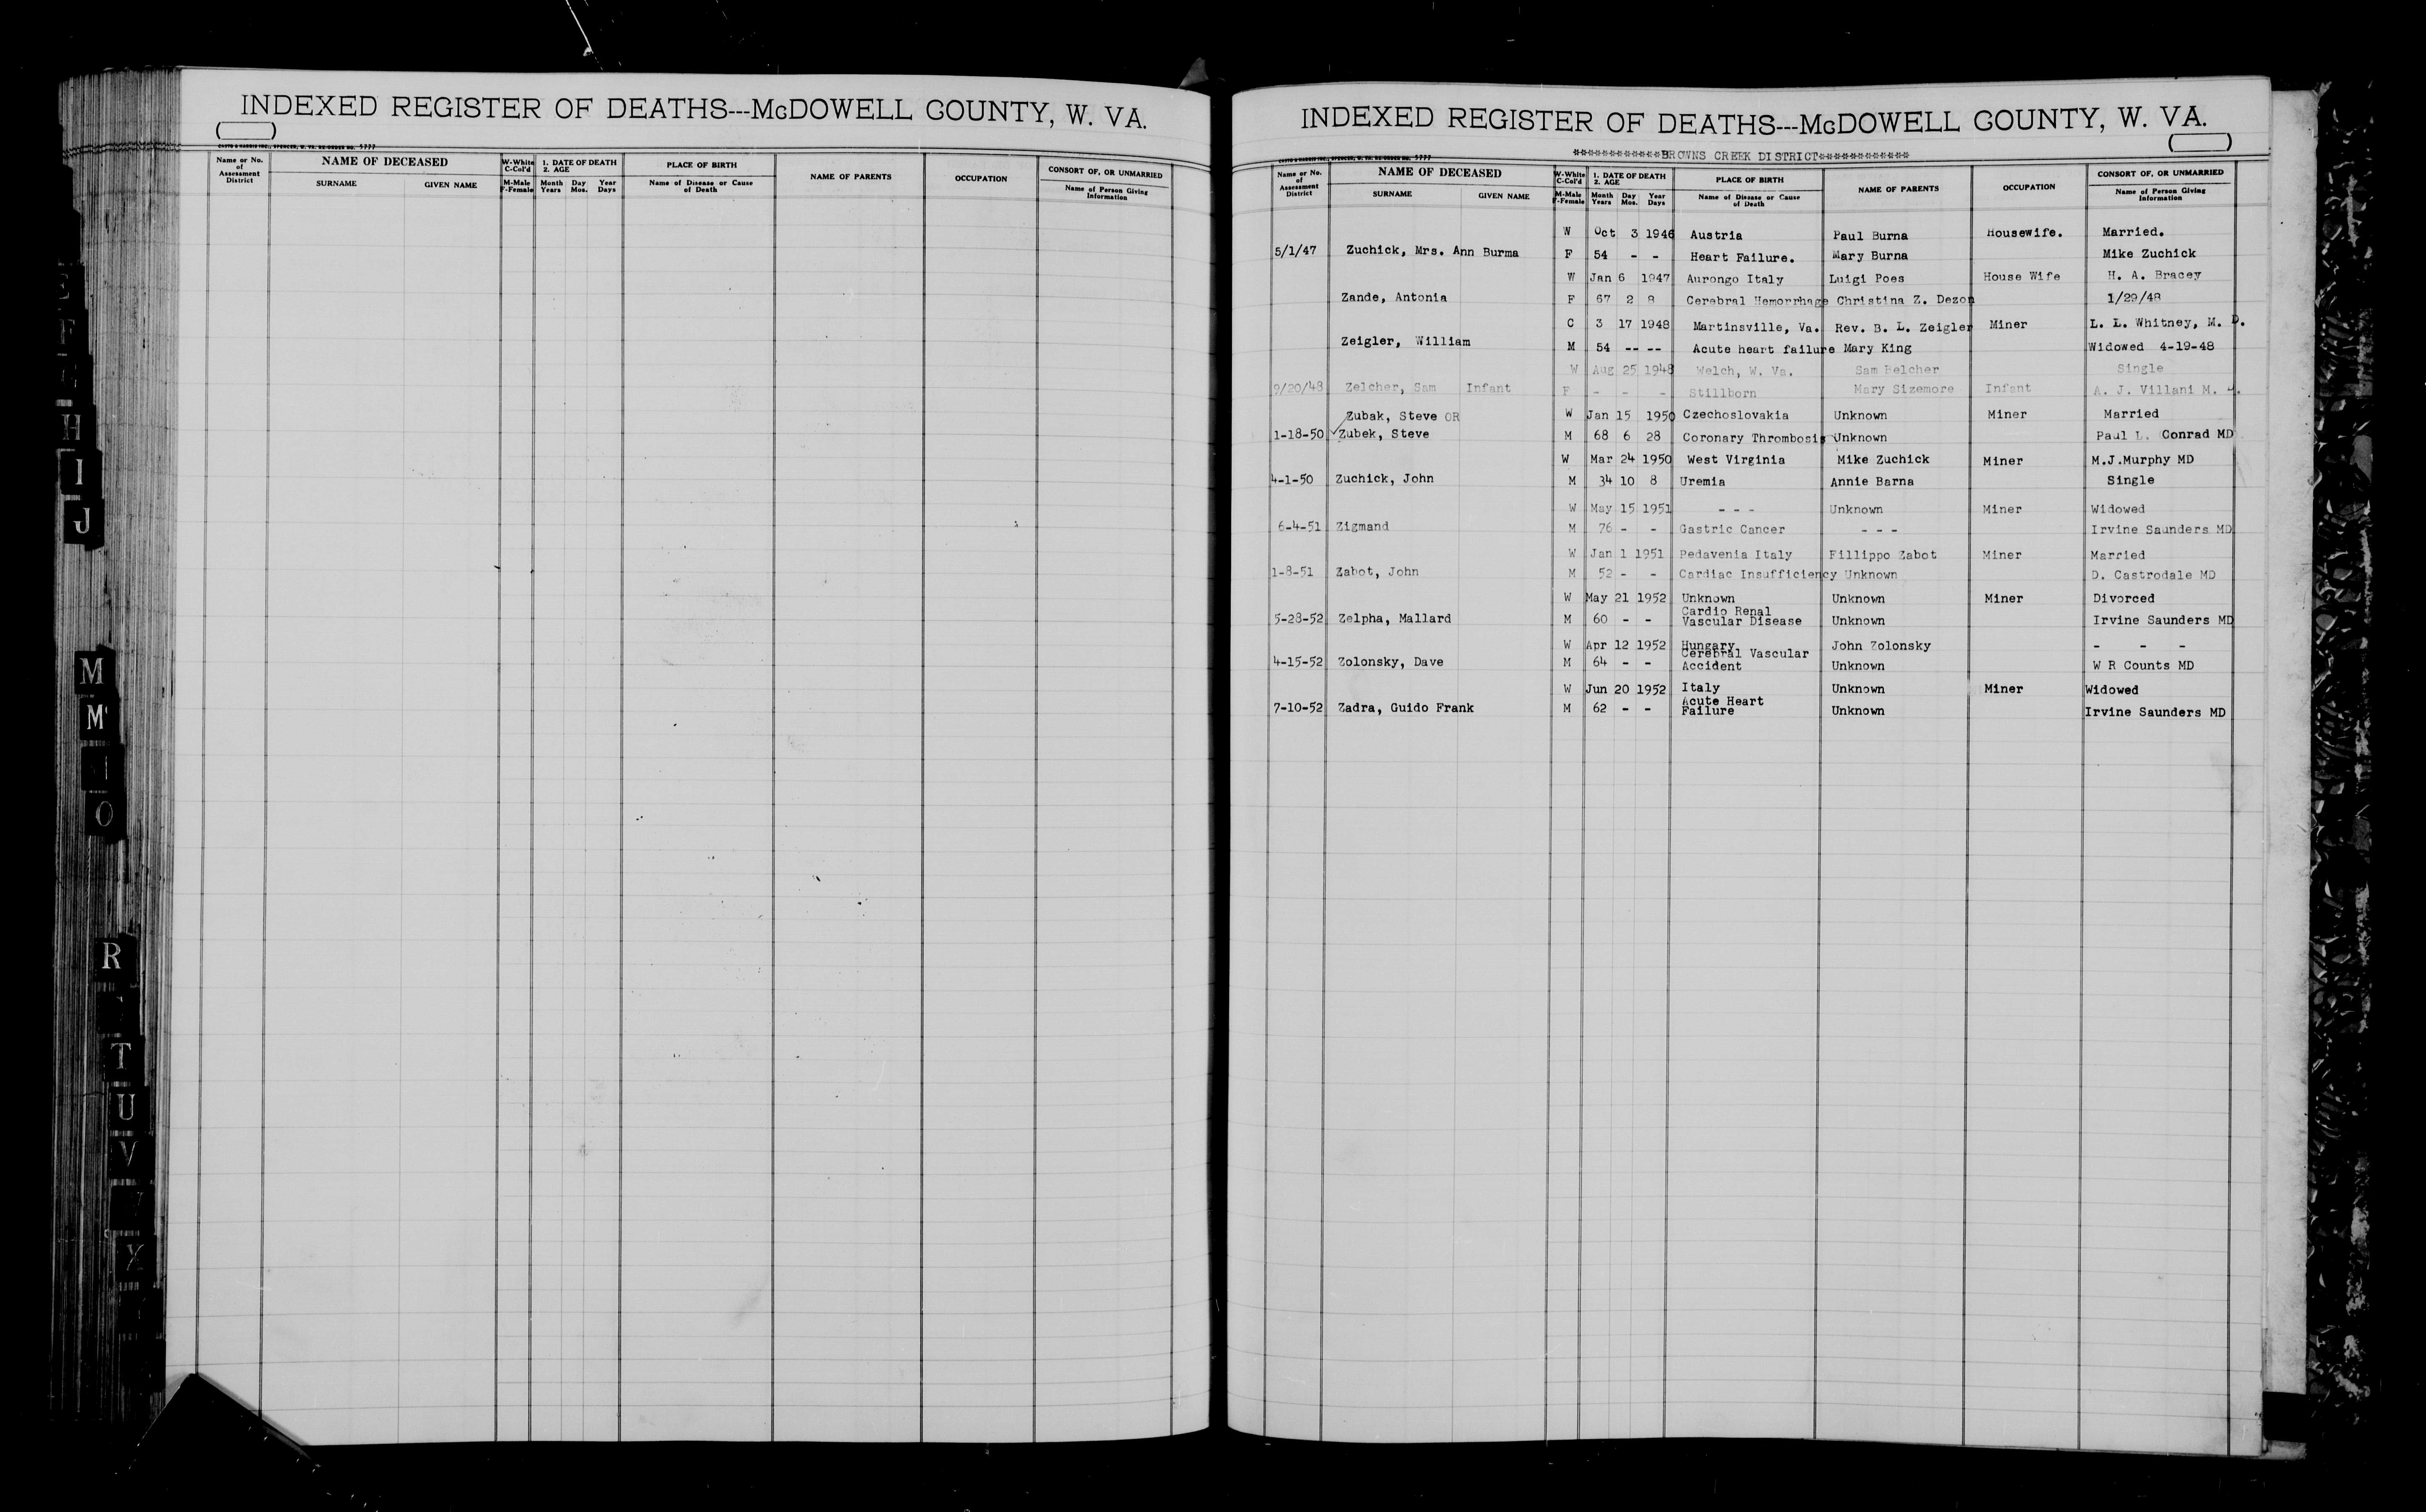 INDEXED REGISTER OF DEATHS---McDOWELL COUNTY, W. VA.
Name or No. of Assessment District
NAME OF DECEASED
SURNAME GIVEN NAME
W-White C-Col'd
M-Male F-Female
1. DATE OF DEATH
2. AGE
Month Day Year
Years Mos. Days
PLACE OF BIRTH
Name of Disease or Cause of Death
NAME OF PARENTS
OCCUPATION
CONSORT OF, OR UNMARRIED
Name of Person Giving Information
INDEXED REGISTER OF DEATHS---McDOWELL COUNTY, W. VA.
************BROWNS CREEK DISTRICT************
Name or No. of Assessment District
NAME OF DECEASED
SURNAME GIVEN NAME
W-White C-Col'd
M-Male F-Female
1. DATE OF DEATH
2. AGE
Month Day Year
Years Mos. Days
PLACE OF BIRTH
Name of Disease or Cause of Death
NAME OF PARENTS
OCCUPATION
CONSORT OF, OR UNMARRIED
Name of Person Giving Information
W Oct 3 1946 Austria Paul Burna Housewife. Married.
5/1/47 Zuchick, Mrs. Ann Burma F 54 - - Heart Failure. Mary Burna Mike Zuchick
W Jan 6 1947 Aurongo Italy Luigi Poes House Wife H. A. Bracey
Zande, Antonia F 67 2 8 Cerebral Hemorrhage Christina Z. Dezon 1/29/48
C 3 17 1948 Martinsville, Va. Rev. B. L. Zeigler Miner L. L. Whitney, M. D.
Zeigler, William M 54 -- -- Acute heart failure Mary King Widowed 4-19-48
W Aug 25 1948 Welch, W. Va. Sam Belcher Single
9/20/48 Zelcher, Sam Infant F - - - Stillborn Mary Sizemore Infant A. J. Villani M.
Zubak, Steve OR W Jan 15 1950 Czechoslovakia Unknown Miner Married
1-18-50 ✓Zubek, Steve M 68 6 28 Coronary Thrombosis Unknown Paul L. Conrad MD
W Mar 24 1950 West Virginia Mike Zuchick Miner M.J.Murphy MD
4-1-50 Zuchick, John M 34 10 8 Uremia Annie Barna Single
W May 15 1951 - - - Unknown Miner Widowed
6-4-51 Zigmand M 76 - - Gastric Cancer - - - Irvine Saunders MD
W Jan 1 1951 Pedavenia Italy Fillippo Zabot Miner Married
1-8-51 Zabot, John M 52 - - Cardiac Insufficiency Unknown D. Castrodale MD
W May 21 1952 Unknown Unknown Miner Divorced
Cardio Renal
5-28-52 Zelpha, Mallard M 60 - - Vascular Disease Unknown Irvine Saunders MD
W Apr 12 1952 Hungary John Zolonsky - - -
Cerebral Vascular
4-15-52 Zolonsky, Dave M 64 - - Accident Unknown W R Counts MD
W Jun 20 1952 Italy Unknown Miner Widowed
Acute Heart
7-10-52 Zadra, Guido Frank M 62 - - Failure Unknown Irvine Saunders MD
F
H
I
J
M
M
O
R
T
U
V
X